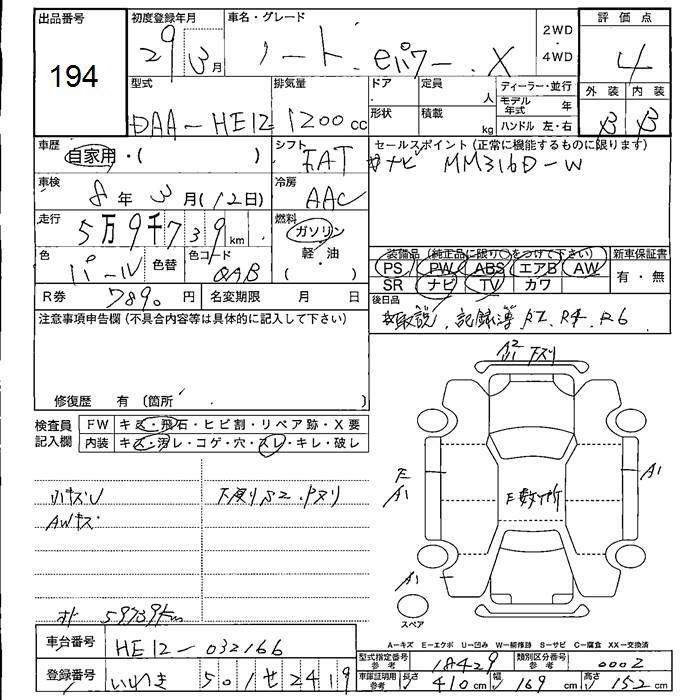 出品番号 初度登録年月 車名・グレード 2WD・4WD 評価点
194 29年3月 ノート eパワー X 4
型式 排気量 ドア 定員 人 ディーラー・並行 外装 内装
DAA-HE12 1200cc 形状 積載 kg モデル年式 年 B B
ハンドル 左・右
車歴 自家用・( ) シフト FAT セールスポイント (正常に機能するものに限ります)
ナビ MM316D-W
車検 8年3月(12日) 冷房 AAC
走行 5万9千739km 燃料 ガソリン 軽・油 ( )
色 パール 色替 色コード QAB
装備品 (純正品に限り○をつけて下さい) 新車保証書
PS PW ABS エアB AW 有・無
SR ナビ TV カワ
R券 7890円 名変期限 月 日 後日品
取説、記録簿 R2、R4、R6
注意事項申告欄 (不具合内容等は具体的に記入して下さい)
修復歴 有 (箇所 )
検査員記入欄 FW キズ・飛石・ヒビ割・リペア跡・X要
内装 キズ・汚レ・コゲ・穴・スレ・キレ・破レ
AWキズ
A1
E
A1
A1
スペア
59739km
車台番号 HE12-032166
登録番号 いわき 501 せ 2419
A-キズ E-エクボ U-凹み W-補修跡 S-サビ C-腐食 XX-交換済
型式指定番号 参考 18429 類別区分番号 参考 0002
車庫証明用 参考 長さ 410cm 幅 169cm 高さ 152cm